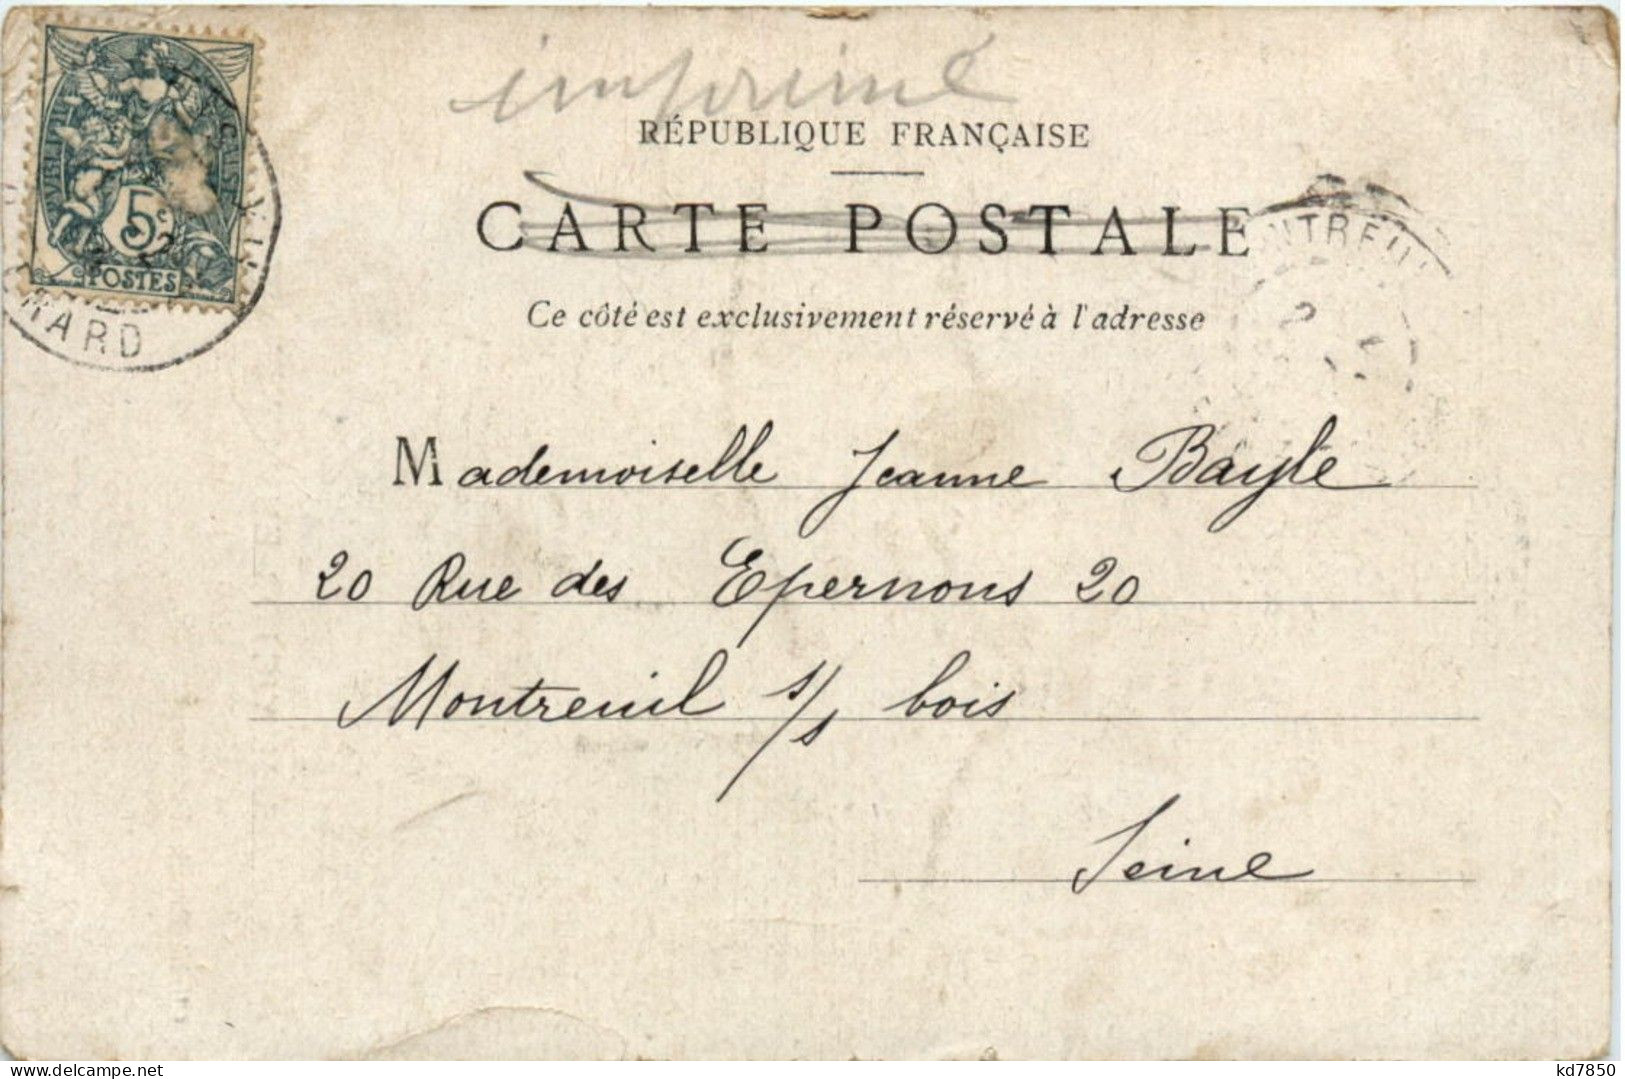 imprimé
RÉPUBLIQUE FRANÇAISE
CARTE POSTALE
Ce côté est exclusivement réservé à l'adresse
5c
POSTES
Mademoiselle Jeanne Bayle
20 Rue des Epernons 20
Montreuil s/s bois
Seine
kd7850